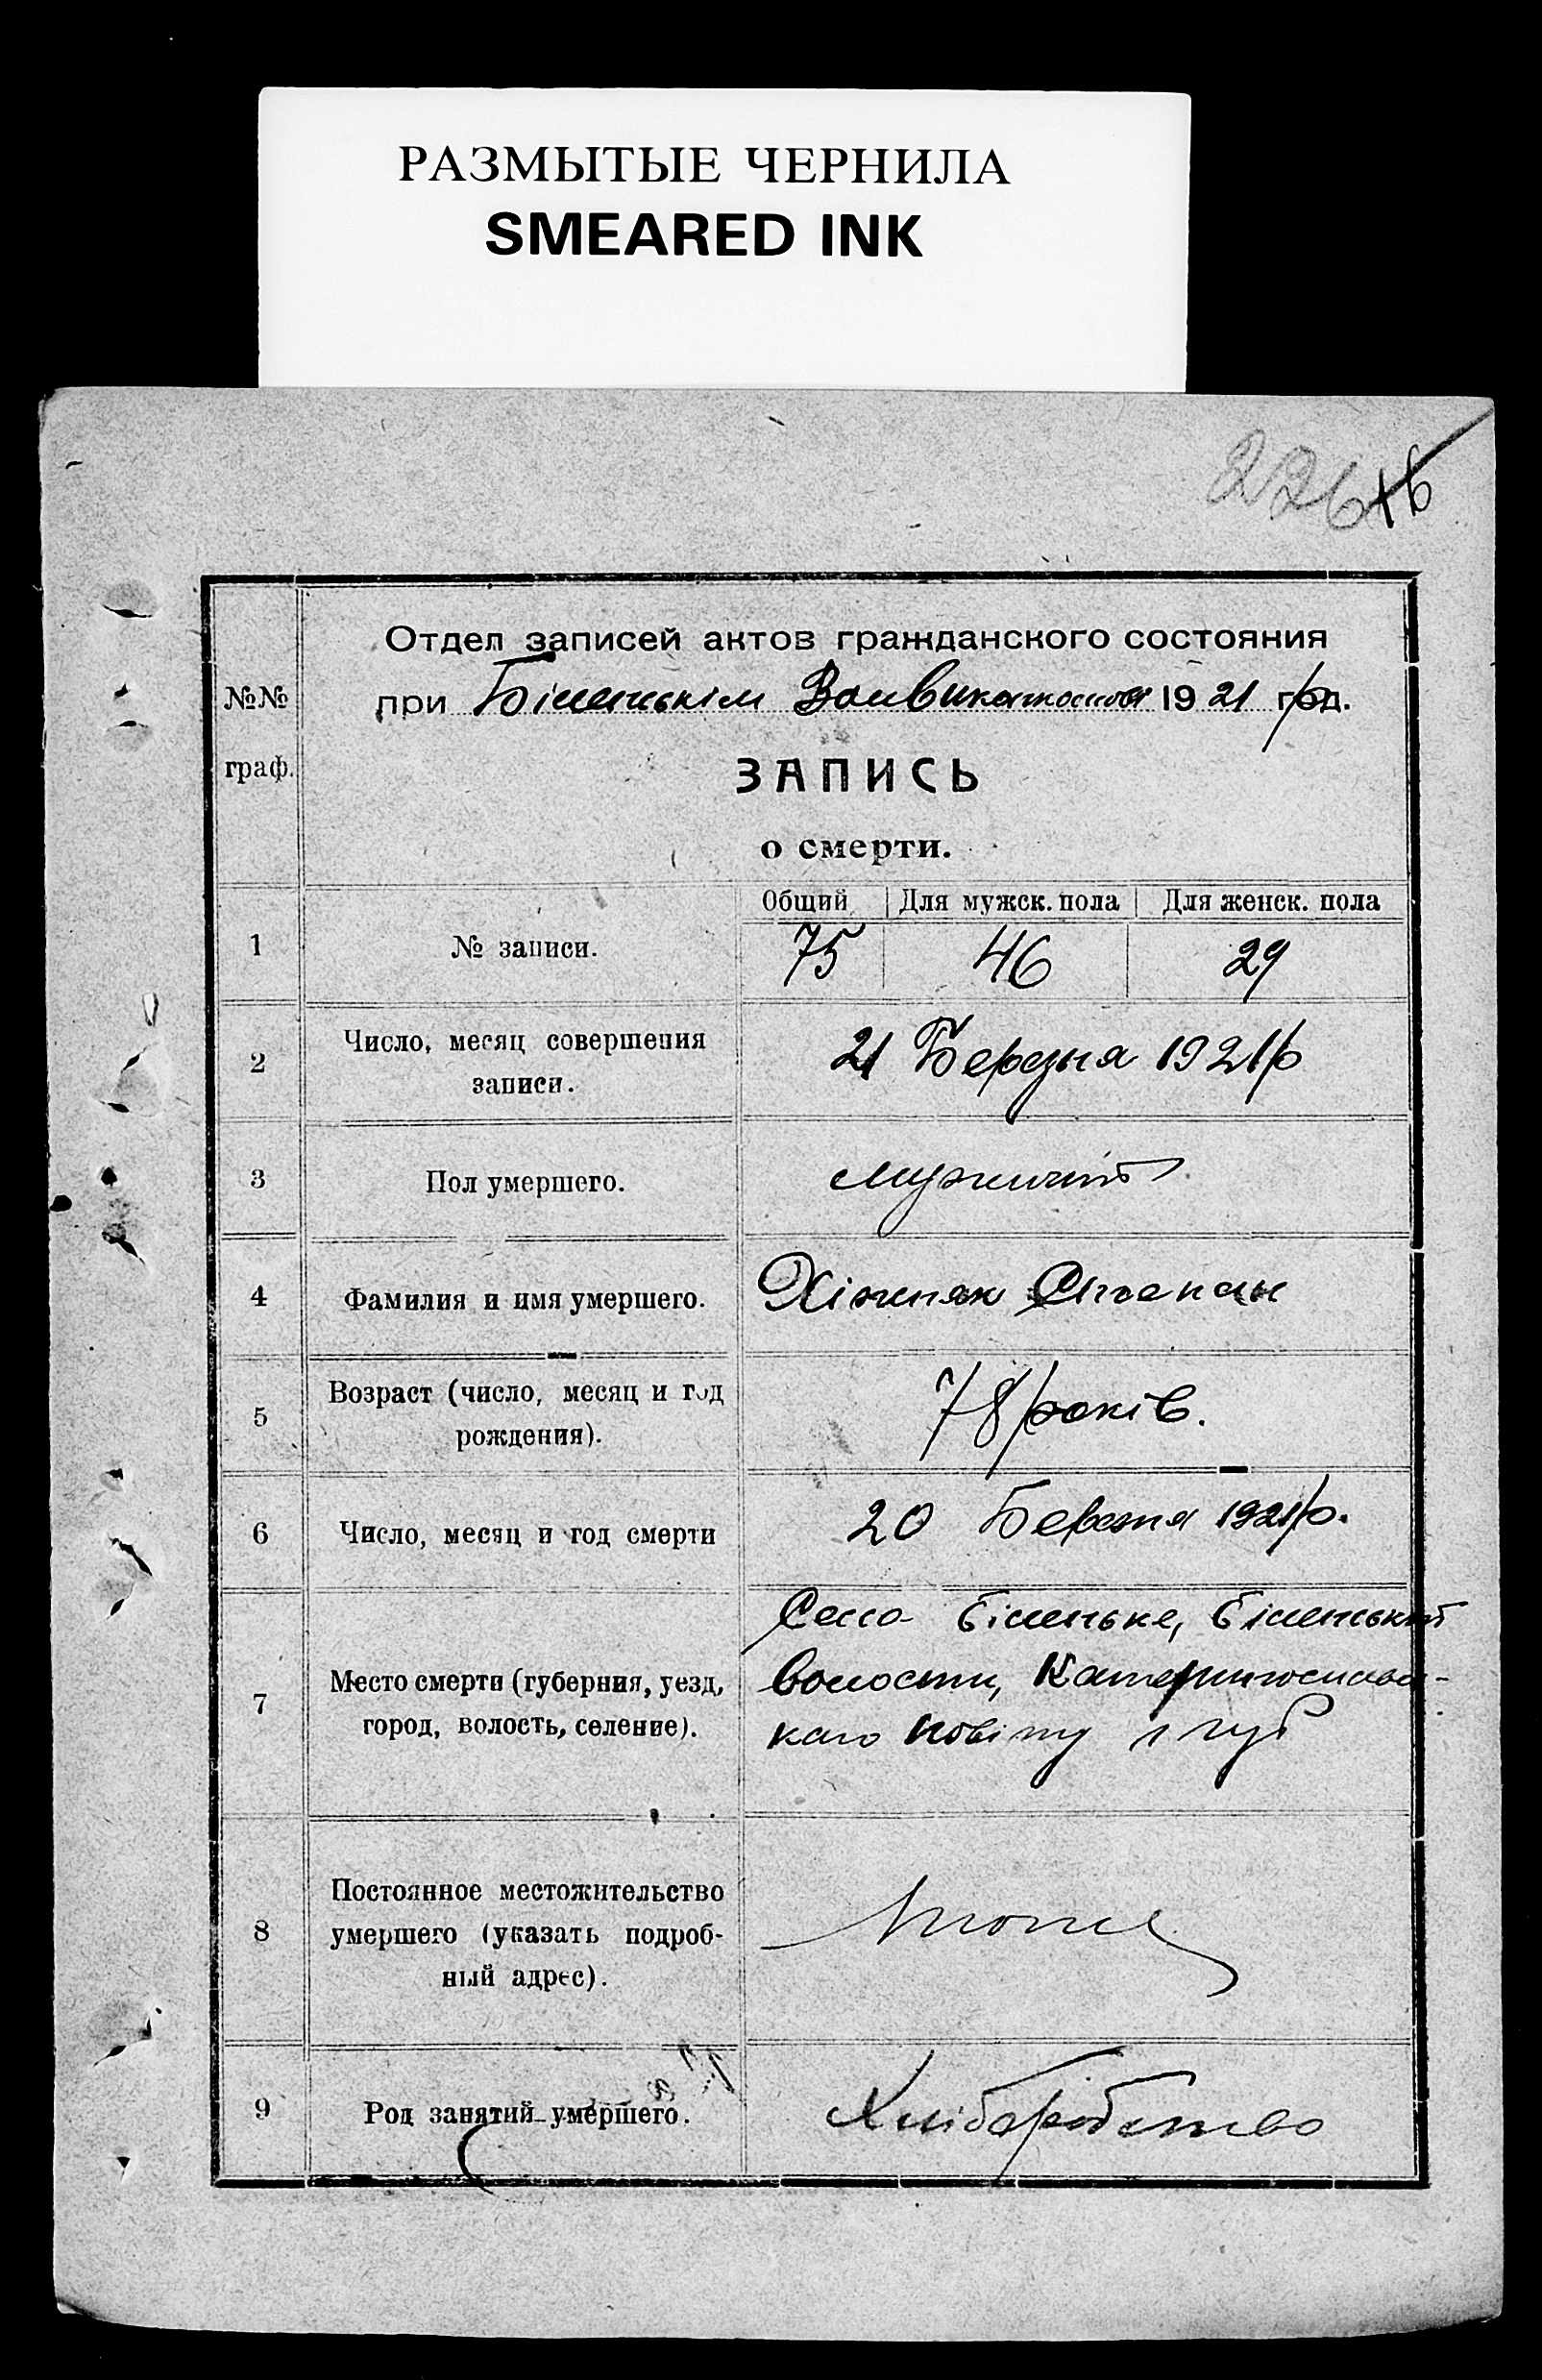 РАЗМЫТЫЕ ЧЕРНИЛА
SMEARED INK
226 16
Отдел записей актов гражданского состояния
при Біленськім Волвиконкомові 1921 год.
№№
граф.
ЗАПИСЬ
о смерти.
Общий Для мужск. пола Для женск. пола
1 № записи. 75 46 29
2 Число, месяц совершения
записи. 21 Березня 1921 р
3 Пол умершего.
4 Фамилия и имя умершего. Хіжняк Степан
5 Возраст (число, месяц и год
рождения). 78 років.
6 Число, месяц и год смерти 20 Березня 1921 р.
7 Место смерти (губерния, уезд,
город, волость, селение).
Село Біленьке, Біленської
волости, Катеринославс-
каго повіту і губ
8 Постоянное местожительство
умершего (указать подроб-
ный адрес).
тоже
9 Род занятий умершего. Хліборобство